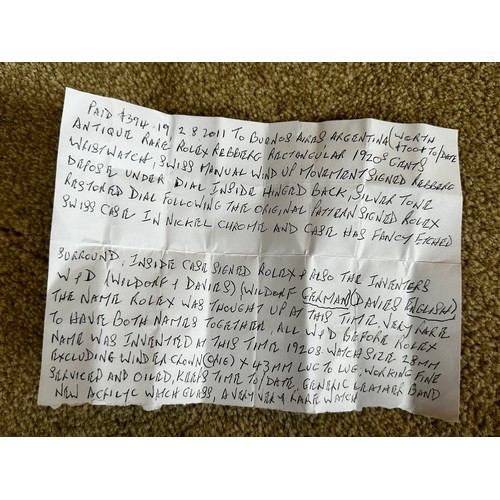 PAID $394.19, 2 8 2011 TO BUENOS AIRES ARGENTINA (WORTH
ANTIQUE RARE ROLEX REBBERG RECTANGULAR 1920S GENTS
WRISTWATCH, SWISS MANUAL WIND UP MOVEMENT SIGNED REBBERG
DEPOSE UNDER DIAL INSIDE HINGED BACK, SILVER TONE
RESTORED DIAL FOLLOWING THE ORIGINAL PATTERN SIGNED ROLEX
SWISS CASE IN NICKEL CHROME AND CASE HAS FANCY ETCHED
SURROUND, INSIDE CASE SIGNED ROLEX & ALSO THE INVENTERS
W & D (WILDORF & DAVIES) (WILDORF GERMAN (DAVIES ENGLISH)
THE NAME ROLEX WAS THOUGHT UP AT THIS TIME, VERY RARE
TO HAVE BOTH NAMES TOGETHER, ALL W & D BEFORE ROLEX
NAME WAS INVENTED AT THIS TIME 1920S WATCH SIZE 28MM
EXCLUDING WINDER CROWN (SIG) X 43MM LUG TO LUG, WORKING FINE
SERVICED AND OILED, KEEPS TIME TO/DATE, GENERIC LEATHER BAND
NEW ACRILIC WATCH GLASS, A VERY VERY RARE WATCH